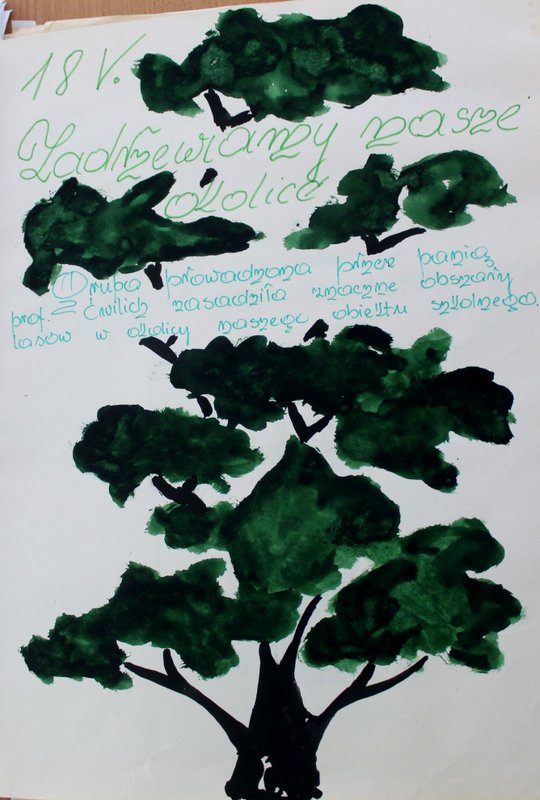 18 V.
Zadrzewiamy nasze
okolice
Grupa prowadzona przez panią
prof. Ćwilich zasadziła znaczne obszary
lasów w okolicy naszego obiektu szkolnego.